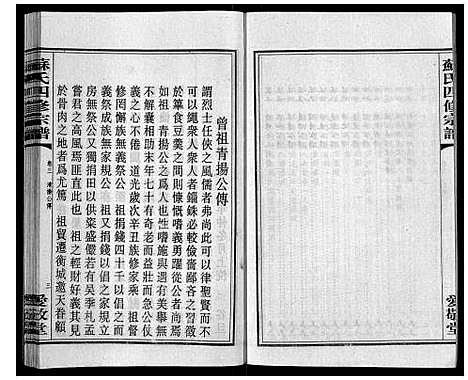 曾祖青揚公傳
謂烈士任俠之風儒者弗尚此可以律聖賢而不
可以繩衆人衆人者錙銖必較儉嗇鄙吝甚至
於簞食豆羹之間則慷慨嗜義勇躍從公者尚焉
如祖 青揚公之爲人也壯與人無異
不解及相助末年七十有奇老而益壯而急公仗
義之心不倦 道光歲次辛丑族修家乘 祖督
修罔懈族無義祭公 祖捐錢四十千以倡之而
義祭成族無家規 祖又捐錢以倡之家規立
房無祭公又獨捐田以供粢盛儼若有吳季札孟
嘗君之高風焉匪直此也 祖之輕財好義其見
於骨肉之地者爲尤篤 祖貿遷衡城邀天眷顧
蘇氏四修宗譜
卷三 青揚公傳
三
愛敬堂
蘇氏四修宗譜
愛敬堂